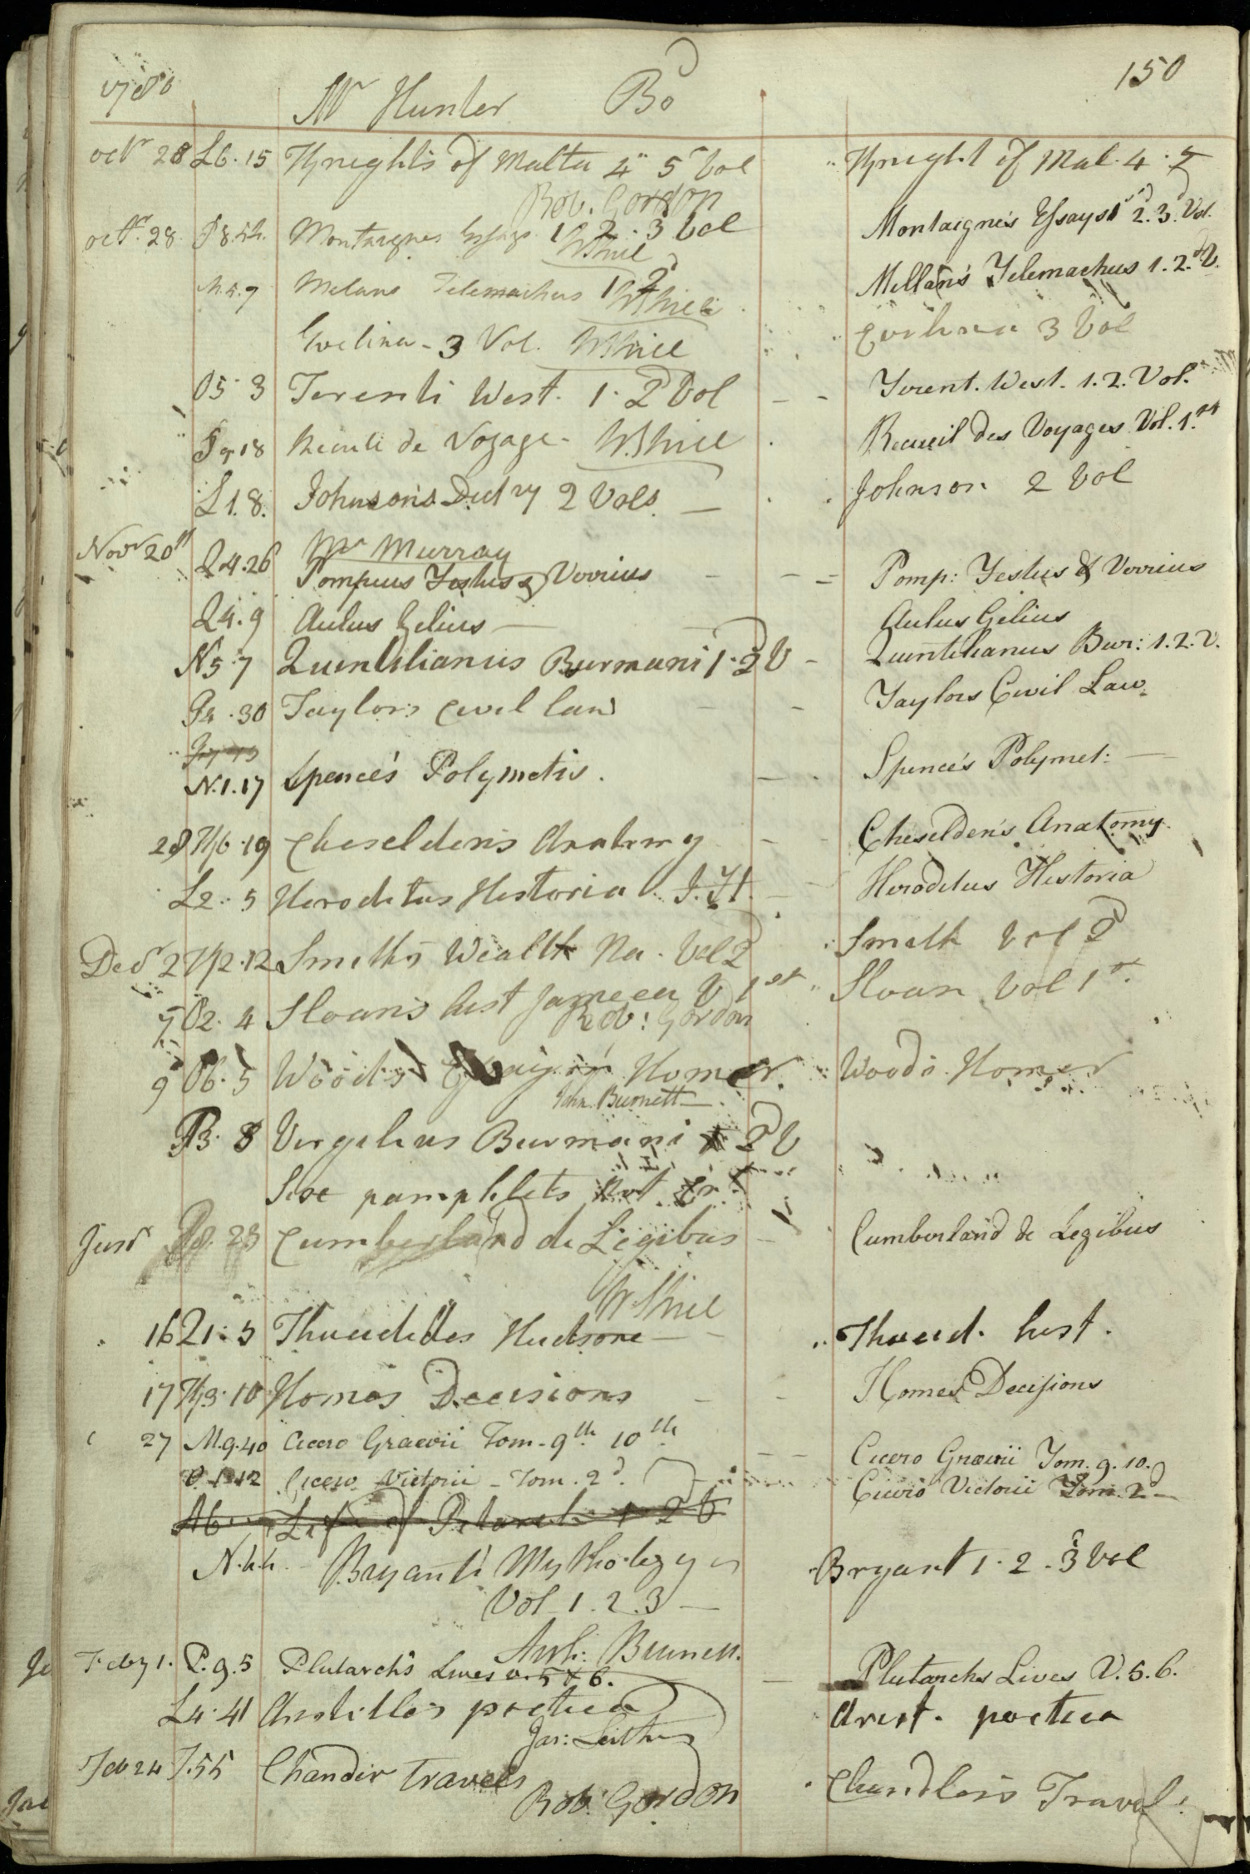 1780 Mr Hunter Bo 150
octr 28 L6.15 Knights of Malta 4 5 Vol Knight of Mal. 4.5
Rob. Gordon
octr. 28. Montaignes Essays 1 2.3 Vol Montaigne's Essays 1 2.3. Vol.
W Shiel
M.5.7 Melans Telemachus 1 2d Mellan's Telemachus 1.2.d V.
W Shiell
Evelina - 3 Vol. W Shiell Evilina 3 Vol
O5.3 Terenti West. 1.2 Vol Terent. West. 1.2. Vol.
18 de Voyage - W. Shiel Recueil des Voyages Vol. 1.st
L1.8. Johnsons Dicty 2 Vols. Johnson 2 Vol
Novr 20th Mr Murray
Q4.26 Pompeius Festus & Verrius Pomp: Festus & Verrius
Q4.9 Aulus Gelius Aulus Gelius
N5.7 Quintilianus Burmani 1.2 V Quintilianus Bur: 1.2.V.
30 Taylors Civel law Taylors Civil Law
N.1.17 Spence's Polymetis. Spence's Polymet:
28 19 Cheseldens Anatomy Cheselden's Anatomy.
L2.5 Heroditus Historia Herodetus Historia
Decr 2 12 Smiths Wealth Na. Vol 2d Smith Vol 2d
5 O2.4 Sloans hist Jameca V 1st Sloan Vol 1st
Rob: Gordon
9 O6.5 Woods Essay on Homer. Woods Homer
John Burnett
P3.8 Virgilius Burmani 2d V
Sixe pamphlets Not
23 Cumberland de Legibus Cumberland de Legibus
W Shiel
16 Q1.5 Thucidides Hudsone Thucid. hist.
17 10 Homes Decisions Homes Decisions
27 M.9.40 Cicero Graevii Tom. 9th 10th Cicero Graevii Tom. 9.10.
12 Cicero Victorii - Tom. 2d. Cicero Victorii Tom 2d
A6 Life of Petarch 1 2d V
N.4.4. Bryants Mythology Bryant 1.2.3 Vol
Vol 1.2.3
Arth: Burnett.
Feby 1. P.9.5 Plutarch's Lives v. 5 & 6. Plutarchs Lives V.5.6.
L4.41 Aristitles poetica Arist. poetica
Jas: Leith
Feb 24 Chandir travels Chandlers Travels
Rob: Gordon